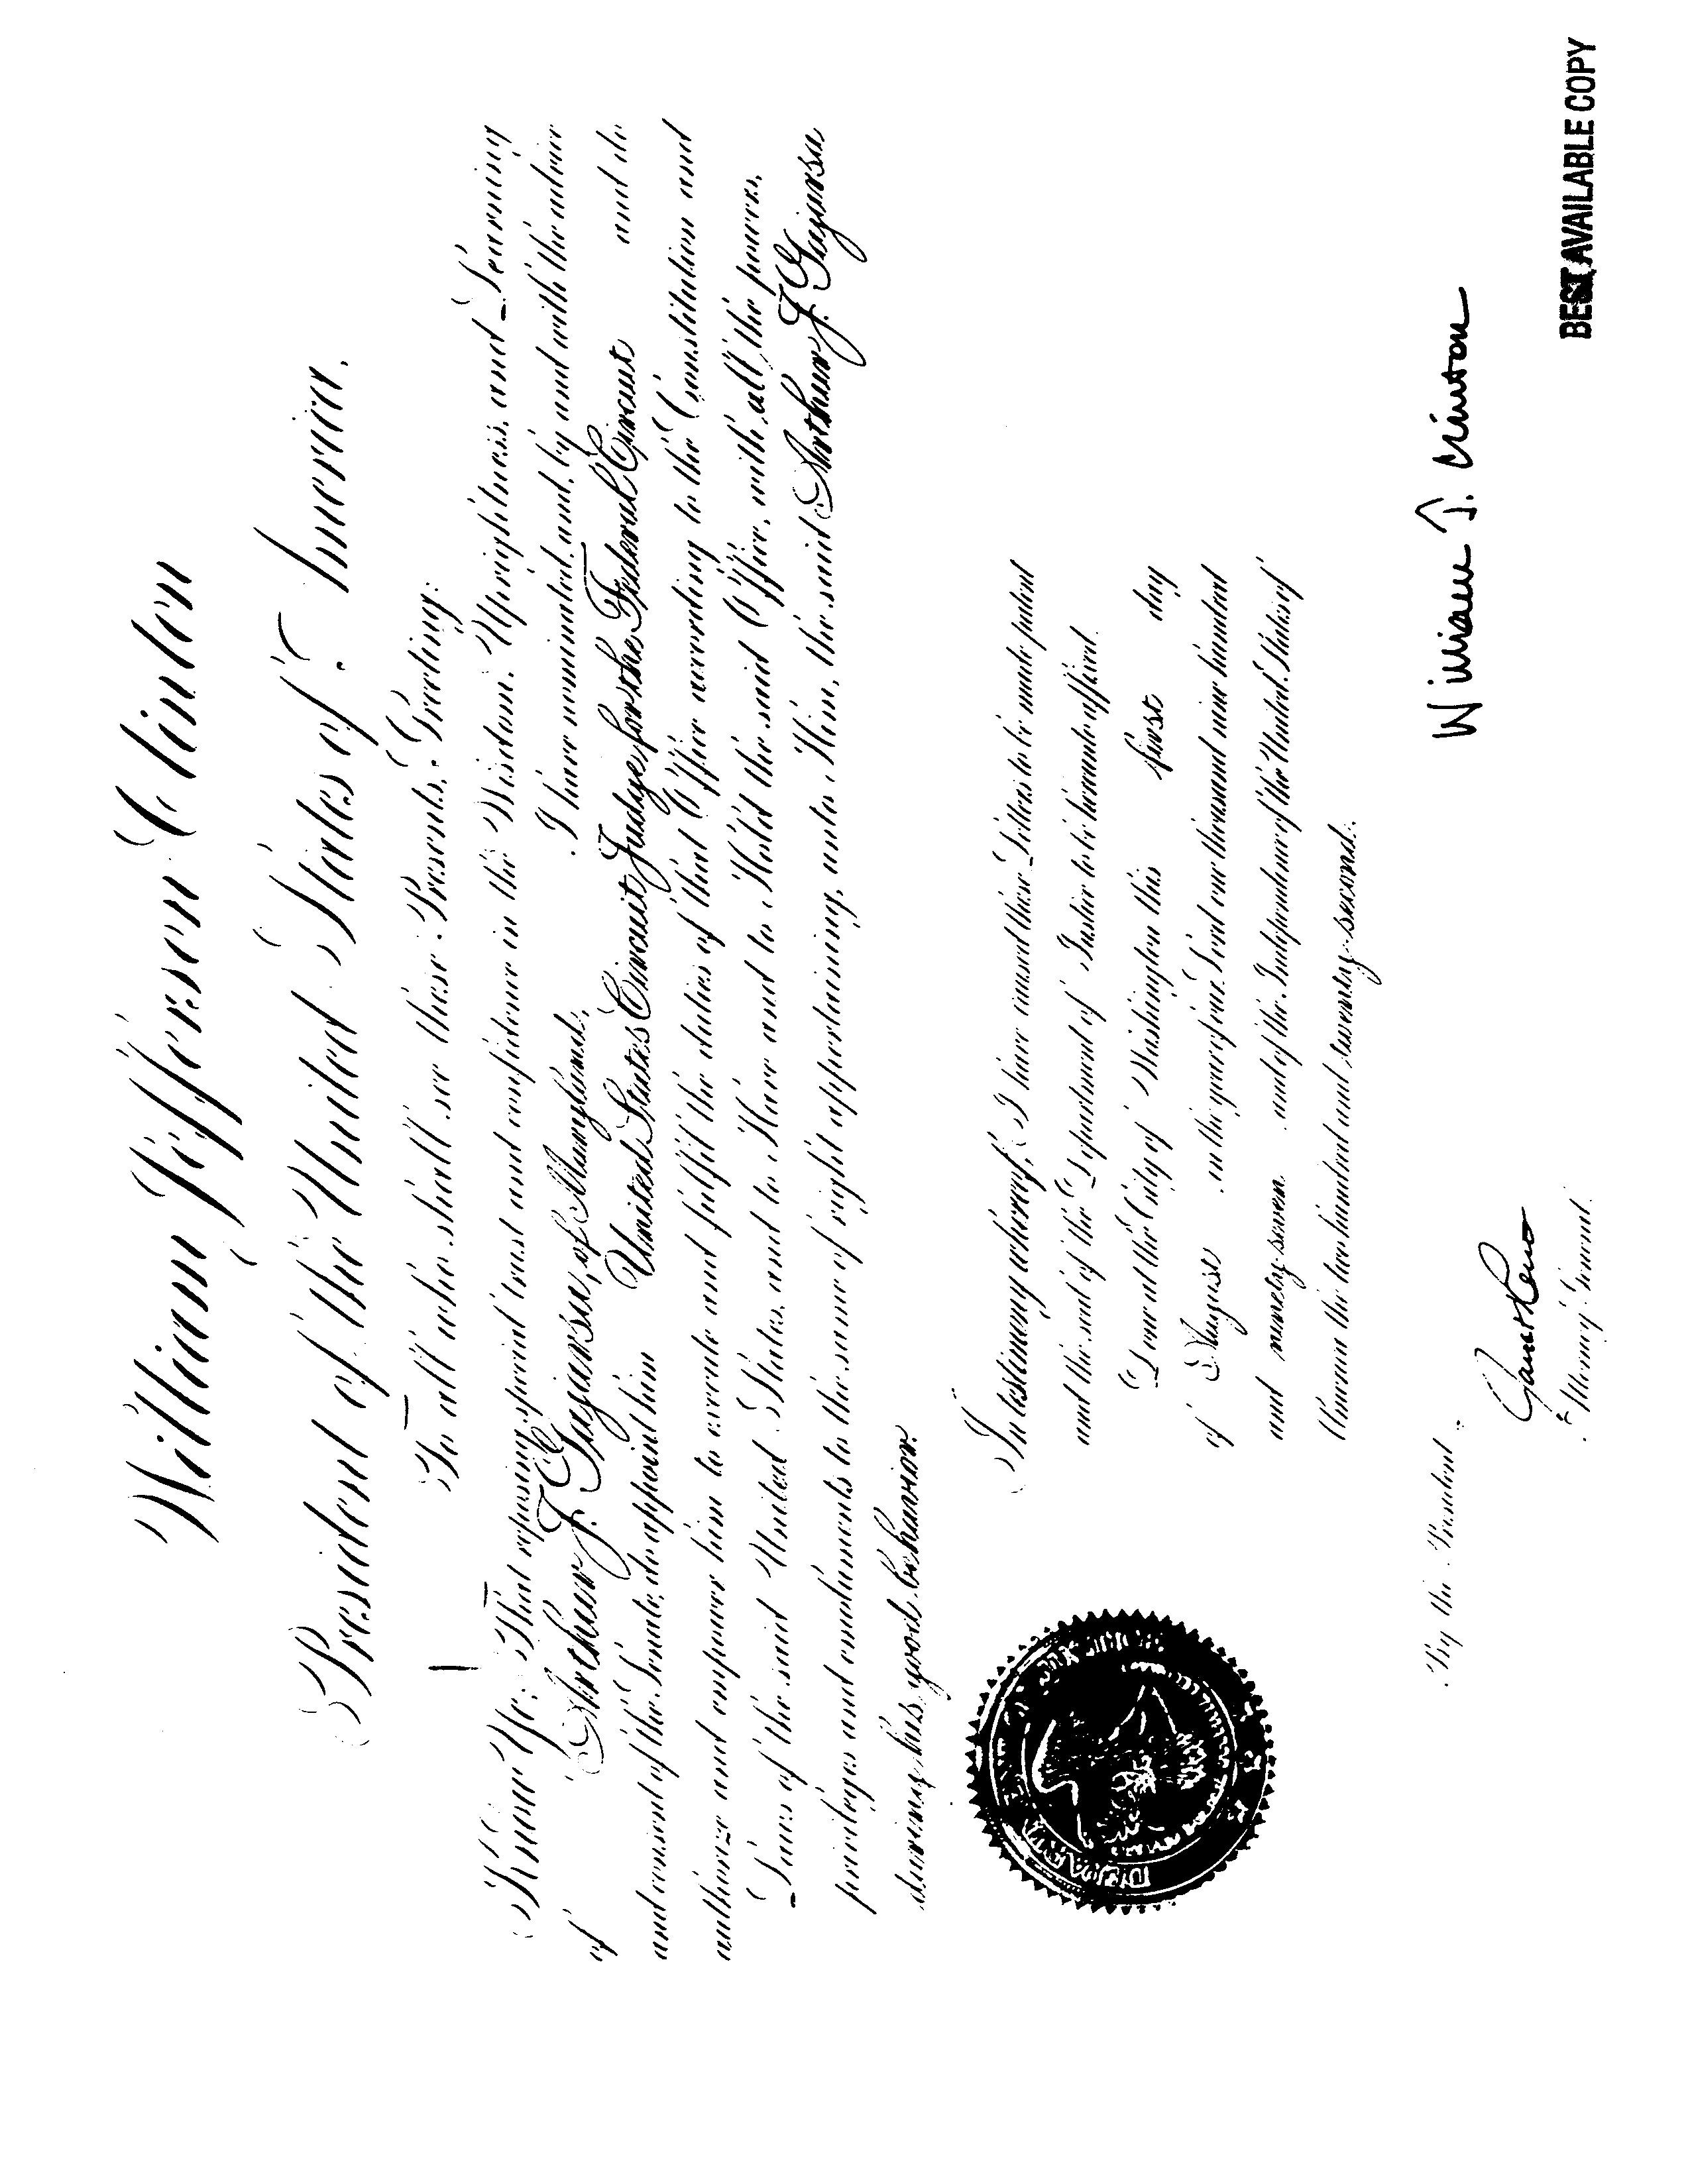 William Jefferson Clinton
President of the United States of America.
To all who shall see these Presents, Greeting:
Know Ye: That reposing special trust and confidence in the Wisdom, Uprightness, and Learning
of Arthur J. Gajarsa, of Maryland, I have nominated, and, by and with the advice
and consent of the Senate, do appoint him United States Circuit Judge for the Federal Circuit and do
authorize and empower him to execute and fulfil the duties of that Office according to the Constitution and
Laws of the said United States, and to Have and to Hold the said Office, with all the powers,
privileges and emoluments to the same of right appertaining, unto Him, the said Arthur J. Gajarsa
during his good behavior.
In testimony whereof, I have caused these Letters to be made patent
and the seal of the Department of Justice to be hereunto affixed.
Done at the City of Washington this first day
of August in the year of our Lord one thousand nine hundred
and ninety-seven and of the Independence of the United States of
America the two hundred and twenty-second.
William J. Clinton
By the President:
Janet Reno
Attorney General.
BEST AVAILABLE COPY